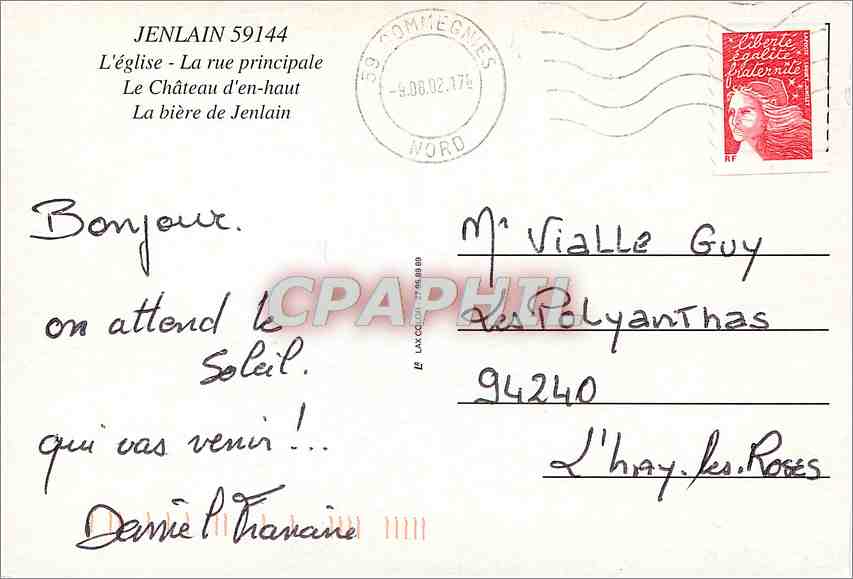 JENLAIN 59144
L'église - La rue principale
Le Château d'en-haut
La bière de Jenlain
59 GOMMEGNIES
-9.08.02.17
NORD
liberté
égalité
fraternité
RF
Bonjour.
on attend le
Soleil.
qui vas venir !..
Daniel Franaine
Mr Vialle Guy
Les Polyanthas
94240
L'hay.les.Roses
CPAPHIL
LAX COLOR